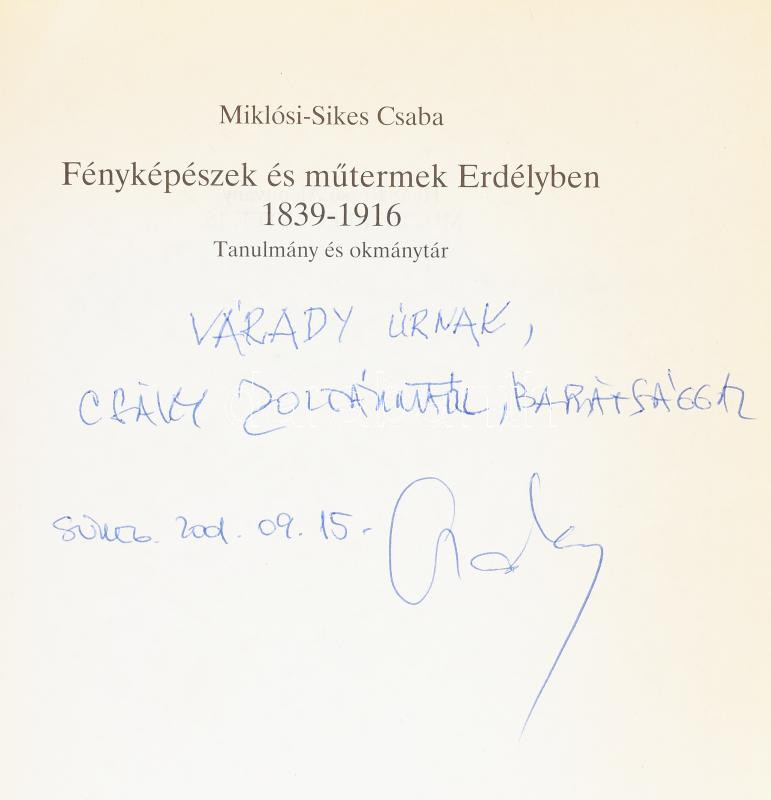 Miklósi-Sikes Csaba
Fényképészek és műtermek Erdélyben
1839-1916
Tanulmány és okmánytár
VÁRADY ÚRNAK,
CSÁKY ZOLTÁNTÓL, BARÁTSÁGGAL
2001. 09. 15.